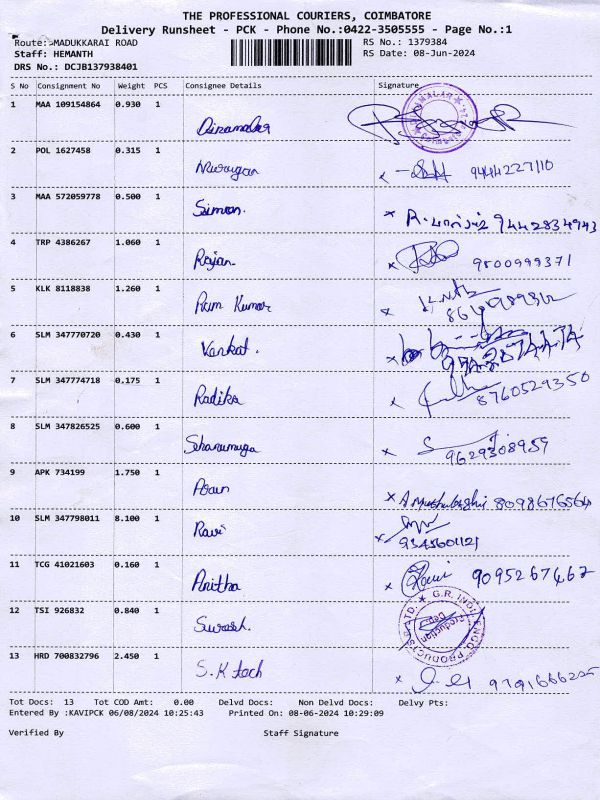 THE PROFESSIONAL COURIERS, COIMBATORE
Delivery Runsheet - PCK - Phone No.:0422-3505555 - Page No.:1
Route:-MADUKKARAI ROAD
RS No.: 1379384
Staff: HEMANTH
RS Date: 08-Jun-2024
DRS No.: DCJB137938401
S No Consignment No Weight PCS Consignee Details Signature
1 MAA 109154864 0.930 1 Dinamalar
2 POL 1627458 0.315 1 Murugan 9444227110
3 MAA 572059778 0.500 1 Simon. 9442834943
4 TRP 4386267 1.060 1 Rajan. 9500999371
5 KLK 8118838 1.260 1 Ram Kumar
6 SLM 347770720 0.430 1 Venkat.
7 SLM 347774718 0.175 1 Radika 8760529350
8 SLM 347826525 0.600 1 Shanumuga 9629308959
9 APK 734199 1.750 1 Arun 8098676564
10 SLM 347798011 8.100 1 Ravi 9345601121
11 TCG 41021603 0.160 1 Anitha 9095267467
12 TSI 926832 0.840 1 Suresh. Production Dept
13 HRD 700832796 2.450 1 S.K tech
Tot Docs: 13 Tot COD Amt: 0.00 Delvd Docs: Non Delvd Docs: Delvy Pts:
Entered By :KAVIPCK 06/08/2024 10:25:43 Printed On: 08-06-2024 10:29:09
Verified By Staff Signature